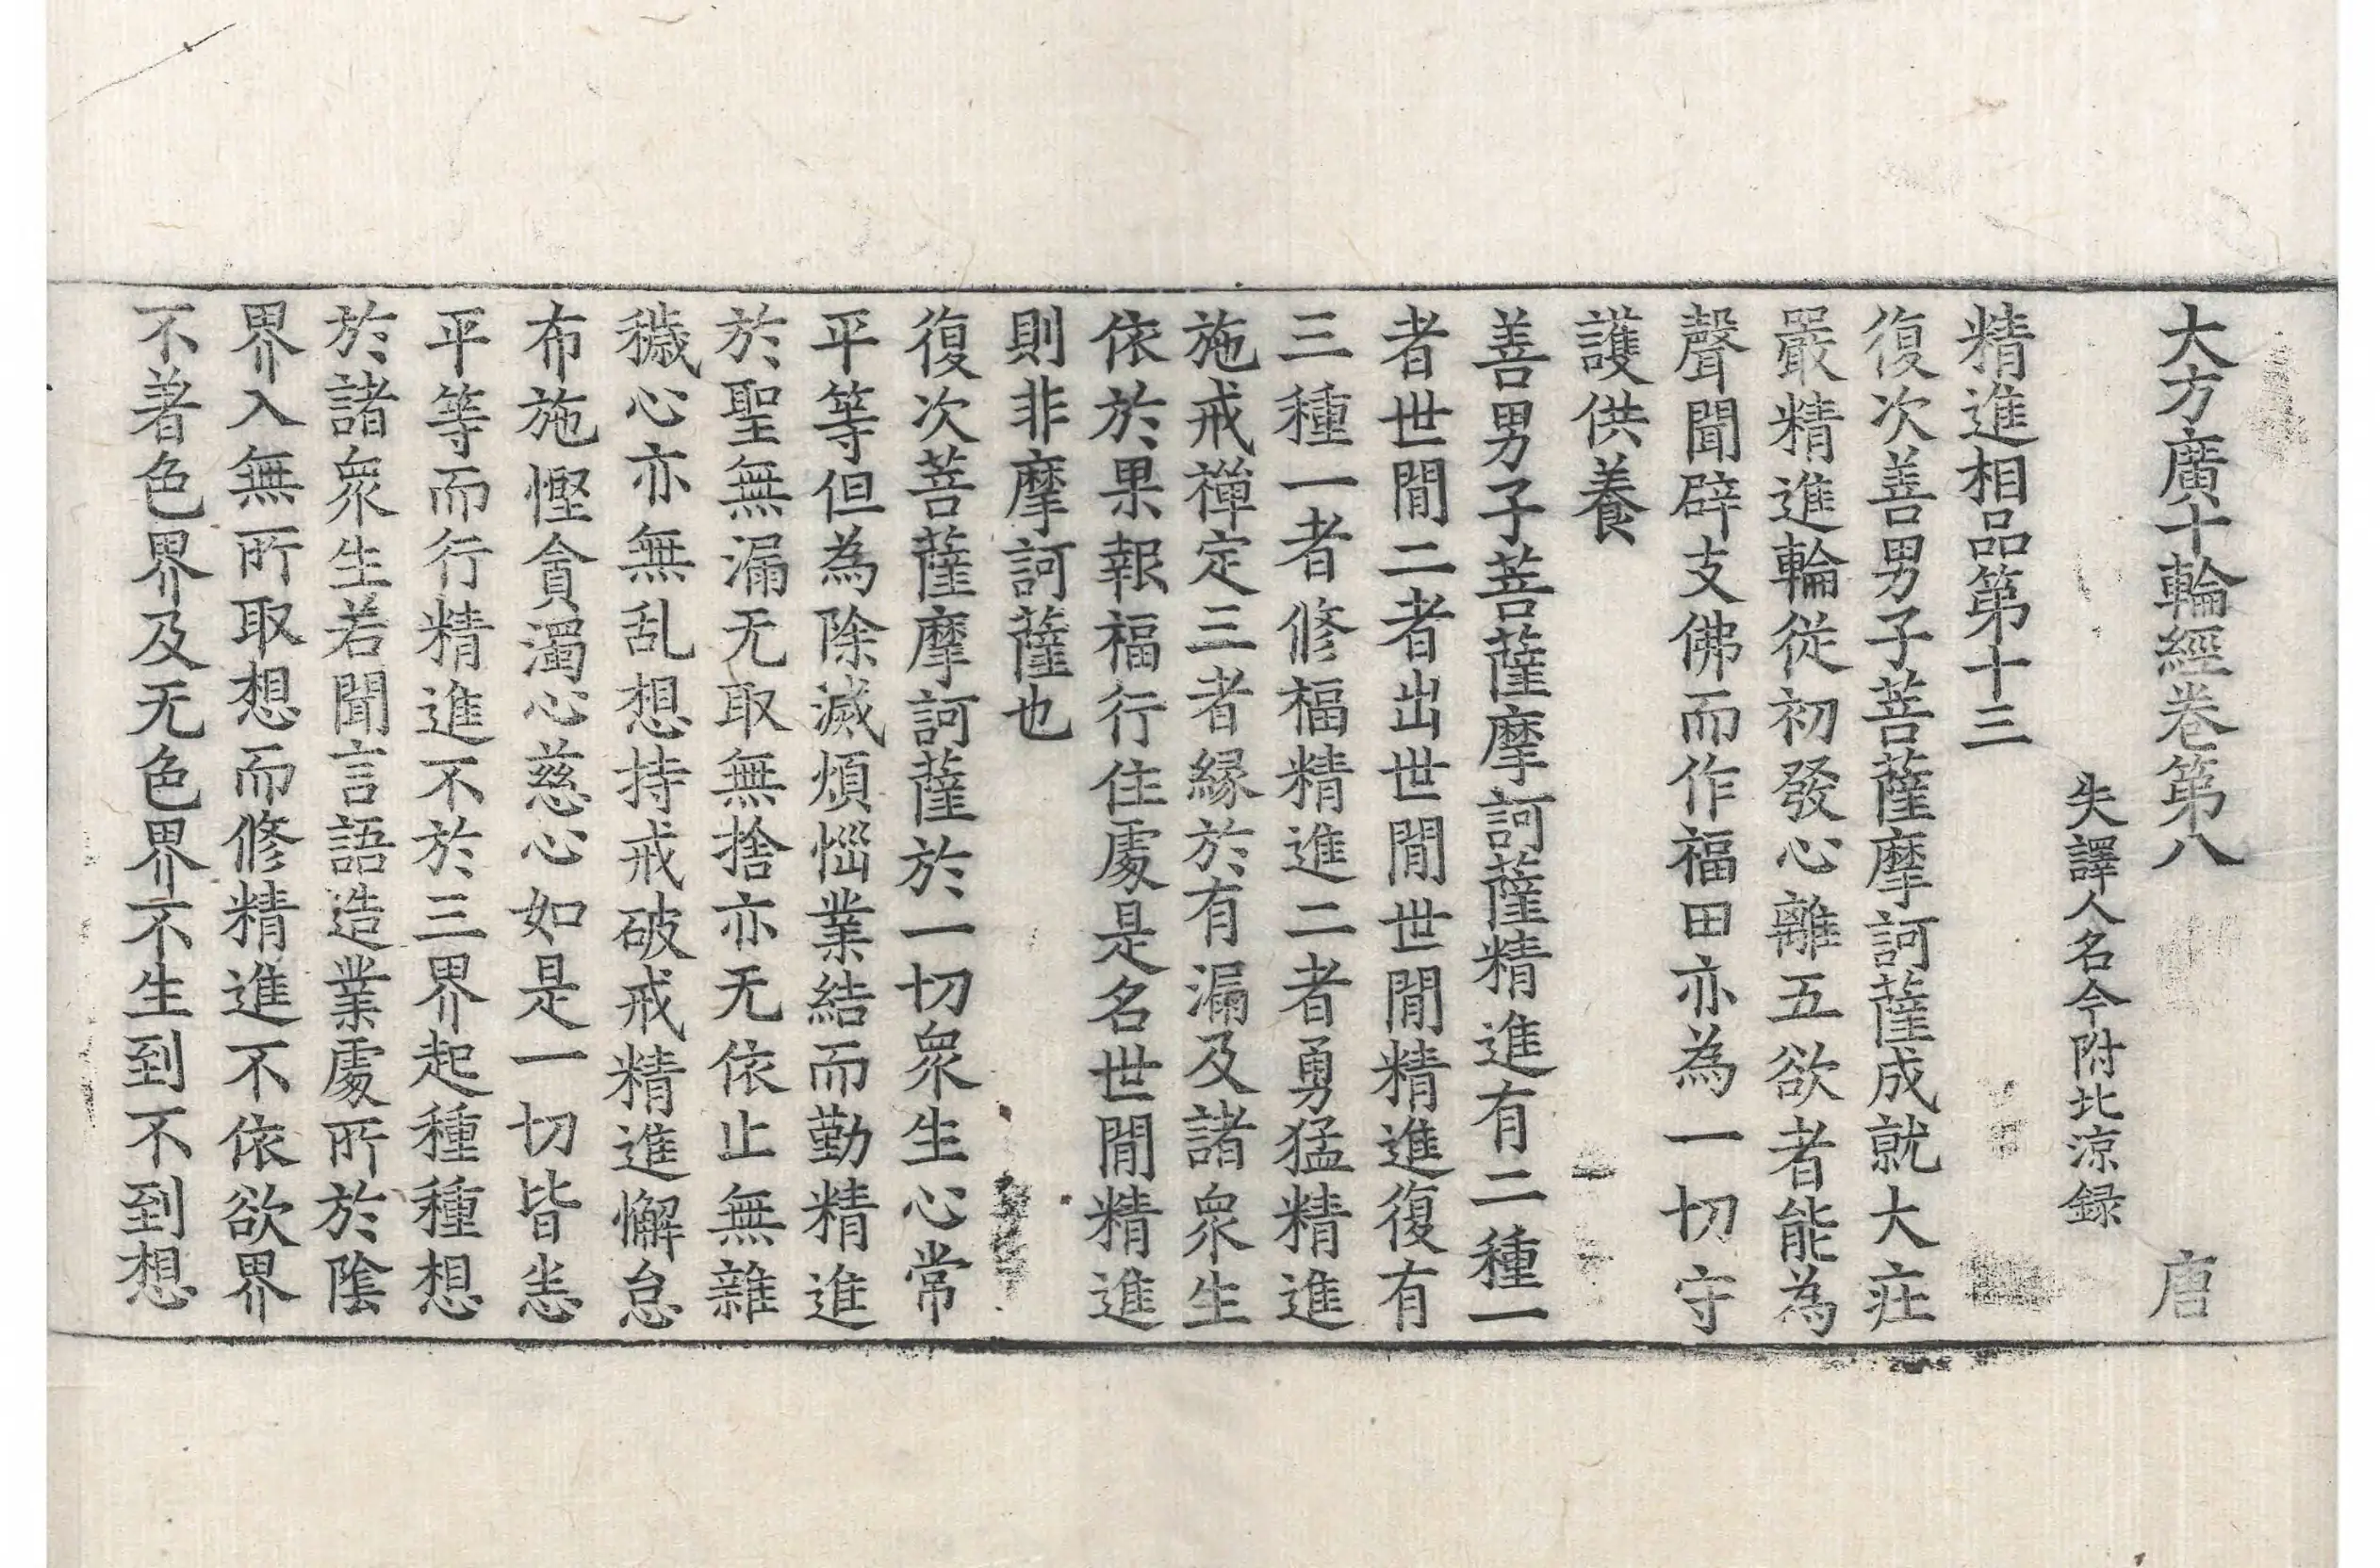 大方廣十輪經卷第八 唐
失譯人名今附北涼録
精進相品第十三
復次善男子菩薩摩訶薩成就大荘
嚴精進輪從初發心離五欲者能為
聲聞辟支佛而作福田亦為一切守
護供養
善男子菩薩摩訶薩精進有二種一
者世閒二者出世閒世閒精進復有
三種一者修福精進二者勇猛精進
施戒禪定三者縁於有漏及諸衆生
依於果報福行住處是名世閒精進
則非摩訶薩也
復次菩薩摩訶薩於一切衆生心常
平等但為除滅煩惱業結而勤精進
於聖無漏无取無捨亦无依止無雜
穢心亦無乱想持戒破戒精進懈怠
布施慳貪濁心慈心如是一切皆悉
平等而行精進不於三界起種種想
於諸衆生若聞言語造業處所於陰
界入無所取想而修精進不依欲界
不著色界及无色界不生到不到想